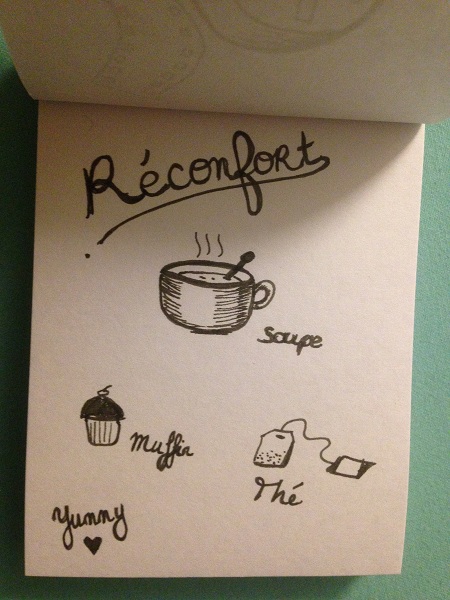 Réconfort
soupe
Muffin
Thé
Yunny